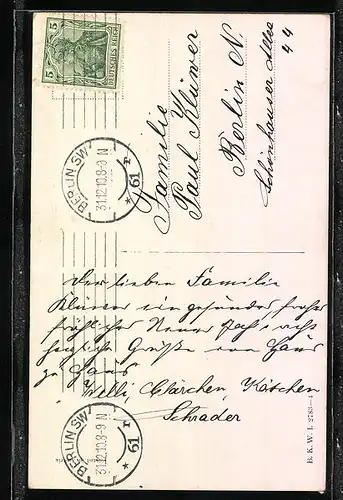 5 DEUTSCHES REICH 5
BERLIN SW
31.12.10.8-9 N
* 61 r
Familie
Paul Klüwer
Berlin N.
Schönhauser Allee
44
Der lieben Familie
Klüwer ein gesundes frohes
fröhliches Neues Jahr, recht
herzliche Grüße von Haus
zu Haus
Willi, Clärchen, Kätchen
Schrader
BERLIN SW
31.12.10.8-9 N
* 61 r
B. K. W. I. 2783-4